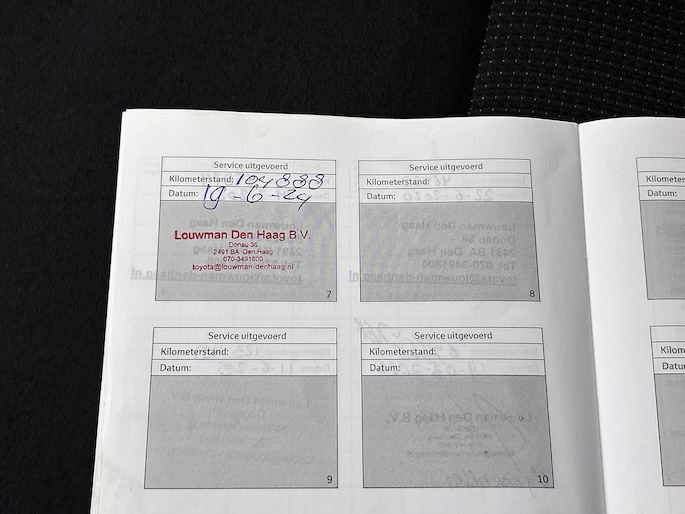 Service uitgevoerd
Kilometerstand: 104888
Datum: 19-6-24
Louwman Den Haag B.V.
Donau 36
2491 BA Den Haag
070-3491800
toyota@louwman-denhaag.nl
7
Service uitgevoerd
Kilometerstand:
Datum:
8
Service uitgevoerd
Kilometerstand:
Datum:
9
Service uitgevoerd
Kilometerstand:
Datum:
10
Kilometer
Datum:
Kilom
Datum